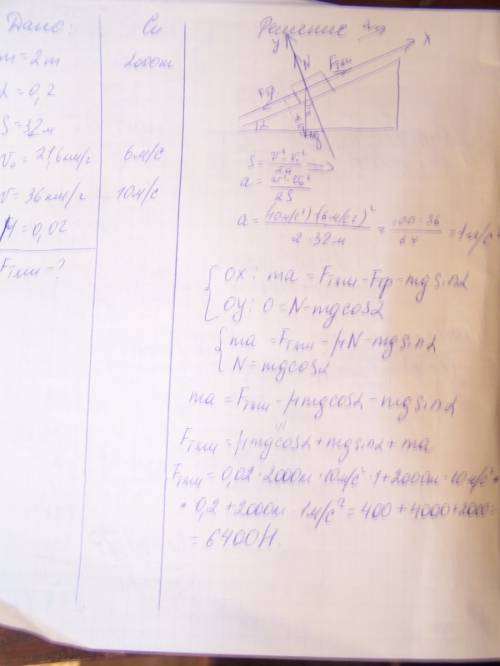 Дано: Си Решение
m = 2т 2000кг
α = 0,2
S = 32м
v₀ = 21,6км/ч 6м/с
v = 36км/ч 10м/с
μ = 0,02
Fтяги - ?
y N Fтяги x
Fтр
α mg
S = (v² - v₀²)/2a
a = (v² - v₀²)/2S
a = ((10м/с)² - (6м/с)²)/(2 · 32м) = (100 - 36)/64 = 1м/с²
OX: ma = Fтяги - Fтр - mg sinα
OY: 0 = N - mg cosα
ma = Fтяги - μN - mg sinα
N = mg cosα
ma = Fтяги - μmg cosα - mg sinα
Fтяги = μmg cosα + mg sinα + ma
Fтяги = 0,02 · 2000кг · 10м/с² · 1 + 2000кг · 10м/с² ·
· 0,2 + 2000кг · 1м/с² = 400 + 4000 + 2000 =
= 6400Н